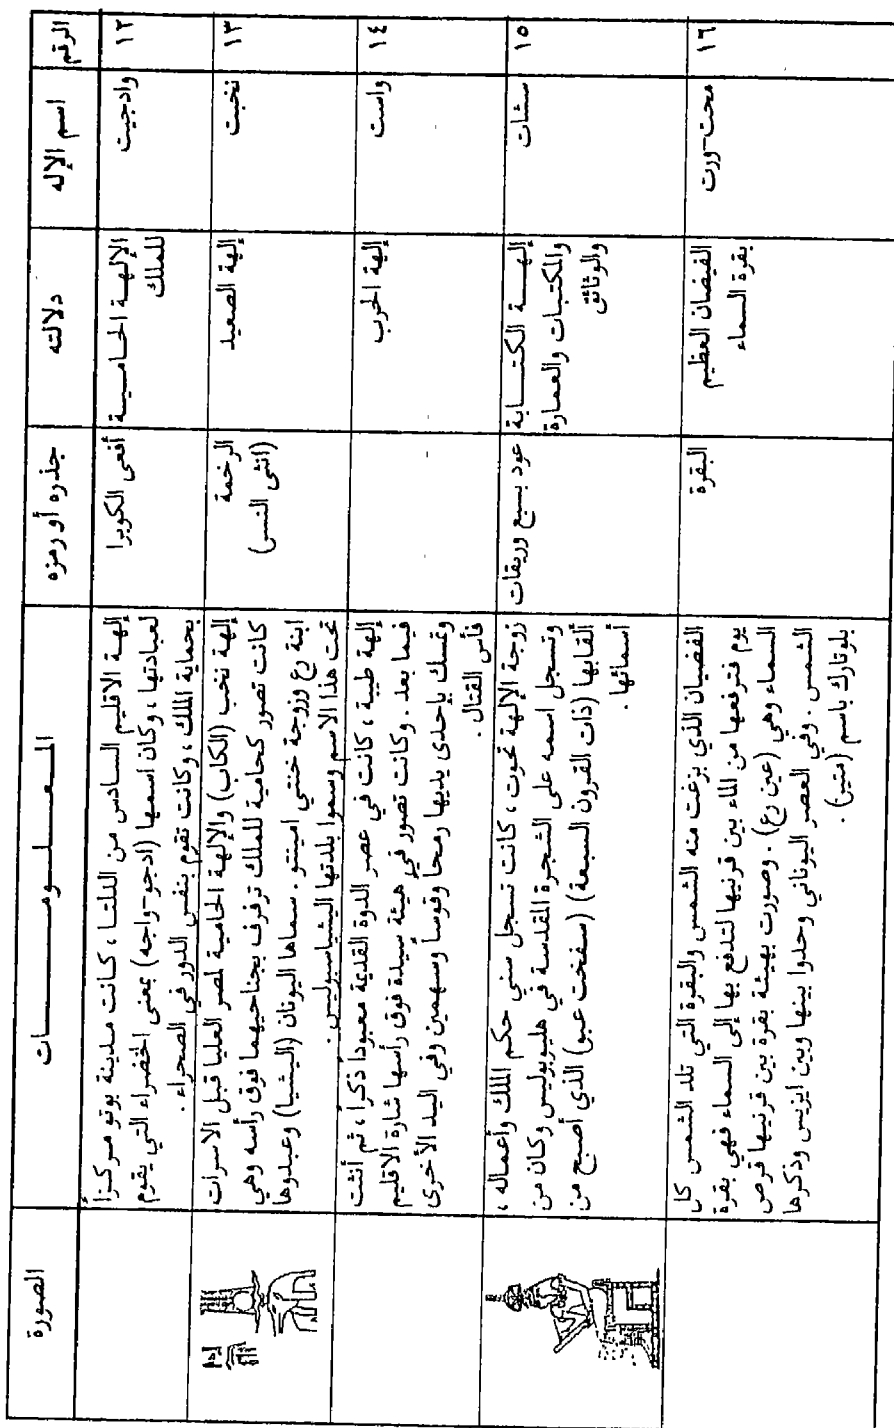 الرقم
اسم الإله
دلالته
جذره أو رمزه
المعلومات
الصورة
١٢
وادجيت
الإلهة الحامية
للملك
أفعى الكوبرا
إلهة الاقليم السادس من الدلتا ، كانت مدينة بوتو مركزاً
لعبادتها ، وكان اسمها (ادجو-واجه) بمعنى الخضراء التي يقوم
بحماية الملك ، وكانت تقوم بنفس الدور في الصحراء .
١٣
نخبت
إلهة الصعيد
الرخمة
(انثى النسر)
إلهة نخب (الكاب) والإلهة الحامية لمصر العليا قبل الاسرات
كانت تصور كحامية للملك ترفرف بجناحيهما فوق رأسه وهي
ابنة رع وزوجة خنتي امينتو . سماها اليونان (اليثيا) وعبدوها
تحت هذا الاسم وسموا بلدتها اليثياسبوليس .
١٤
واست
إلهة الحرب
إلهة طيبة ، كانت في عصر الدوة القديمة معبوداً ذكراً ، ثم أنثت
فيما بعد . وكانت تصور في هيئة سيدة فوق رأسها شارة الاقليم
وتمسك بإحدى يديها رمحا وقوسا وسهمين وفي اليد الأخرى
فأس القتال .
١٥
سشات
إلهة الكتابة
والمكتبات والعمارة
والوثائق
عود بسبع وريقات
زوجة الإلهة تحوت ، كانت تسجل سني حكم الملك وأعماله ،
وتسجل اسمه على الشجرة المقدسة في هليوبوليس وكان من
ألقابها (ذات القرون السبعة) (سفخت عبو) الذي أصبح من
أسمائها .
١٦
محت-ورت
الفيضان العظيم
بقرة السماء
البقرة
الفضيان الذي بزغت منه الشمس والبقرة التي تلد الشمس كل
يوم فترفعها من الماء بين قرنيها لتدفع بها إلى السماء فهي بقرة
السماء وهي (عين رع) . وصورت بهيئة بقرة بين قرنيها قرص
الشمس . وفي العصر اليوناني وحدوا بينها وبين ايزيس وذكرها
بلوتارك باسم (متير) .